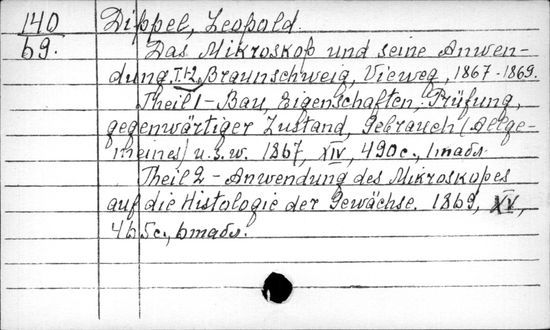 140
69.
Dippel, Leopold.
Das Mikroskop und seine Anwen-
dung. T.1-2 Braunschweig, Vieweg, 1867-1869.
Theil 1 - Bau, Eigenschaften, Prüfung,
gegenwärtiger Zustand, Gebrauch (Allge-
meines) u.s.w. 1867, XIV, 490 c., 1 табл.
Theil 2 - Anwendung des Mikroskopes
auf die Histologie der Gewächse. 1869, XV,
465 c., 6 табл.